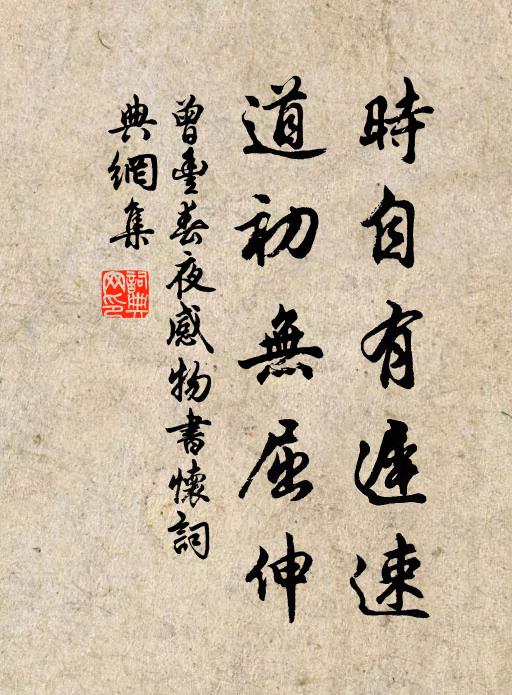 時自有遲速
道初無屈伸
曾豐春夜感物書懷詞
典網集
詞典网印